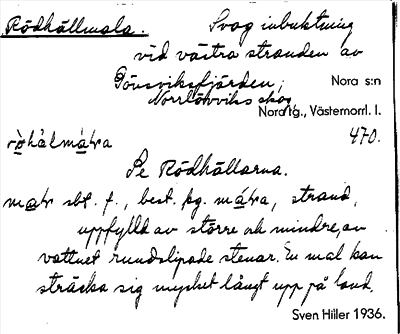 Rödhällmala. Svag inbuktning
vid västra stranden av
Gövsviksfjärden, Nora s:n
Norrlövviks skog, Nordrtg., Västernorrl. l.
470.
Se Rödhällarna.
sbt. f., best. sg. strand,
uppfylld av större och mindre, av
vattnet rundslipade stenar. En mal kan
sträcka sig mycket långt upp på land.
Sven Hiller 1936.